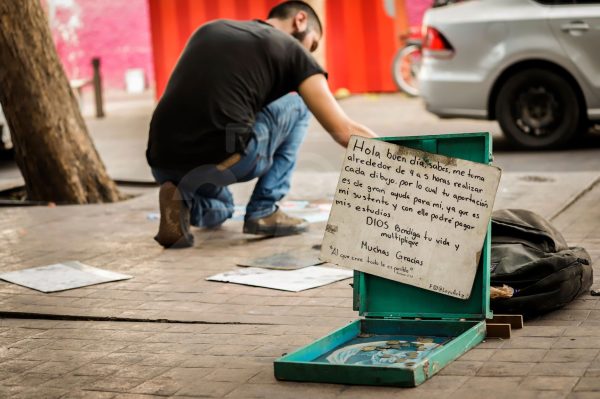 Hola buen día, sabes, me toma
alrededor de 4 a 5 horas realizar
cada dibujo, por lo cual tu aportación
es de gran ayuda para mí, ya que es
mi sustento y con ella podré pagar
mis estudios
DIOS Bendiga tu vida y
multiplique
Muchas Gracias
"Al que cree todo le es posible"